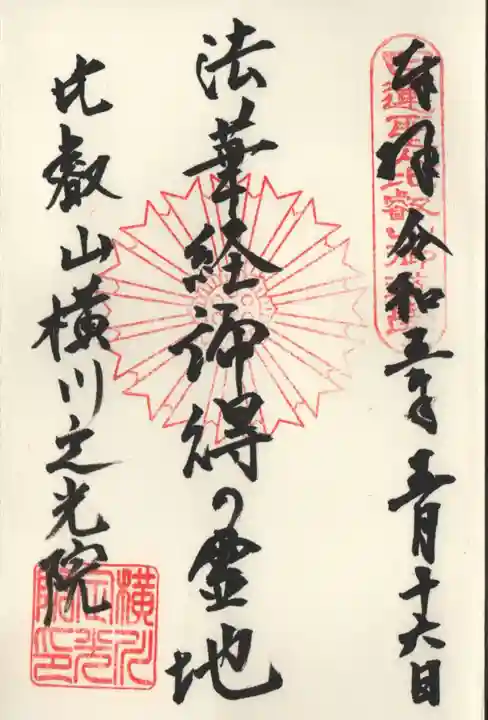 奉拝 令和五年五月十六日
法華経御得の霊地
比叡山横川定光院
横川定光院印